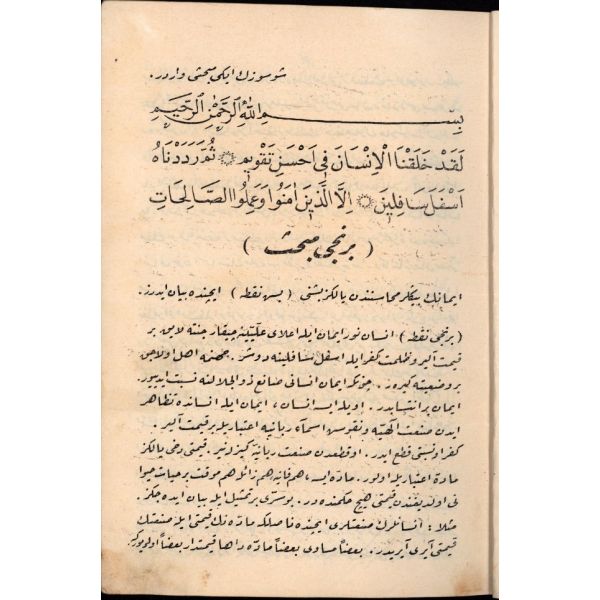 شو سوزك ايكى مبحثى واردر.
بِسْمِ اللّٰهِ الرَّحْمٰنِ الرَّحِيمِ
لَقَدْ خَلَقْنَا الْاِنْسَانَ فِى اَحْسَنِ تَقْوِيمٍ ۞ ثُمَّ رَدَدْنَاهُ
اَسْفَلَ سَافِلِينَ ۞ اِلَّا الَّذِينَ اٰمَنُوا وَعَمِلُوا الصَّالِحَاتِ
( برنجى مبحث )
ايمانك بيكلر محاسنندن يالكز بشنى ( بش نقطه ) ايچنده بيان ايدرز.
( برنجى نقطه ) انسان نور ايمان ايله اعلاى عليّينه چيقار جنّته لايق بر
قيمت آلير و ظلمت كفر ايله اسفل سافلينه دوشر. جهنّمه اهل اولاجق
بر وضعيته كيرر. چونكه ايمان انسانى صانع ذو الجلالنه نسبت ايدييور.
ايمان بر انتسابدر. اويله ايسه انسان، ايمان ايله انسانده تظاهر
ايدن صنعت الهيّه و نقوش اسماء ربانيه اعتباريله بر قيمت آلير.
كفر او نسبتى قطع ايدر. او قطعدن صنعت ربانيه كيزلنير. قيمتى دخى يالكز
مادّه اعتباريله اولور. مادّه ايسه، هم فانيه هم زائل هم موقت بر حيات حيوا
نى اولديغندن قيمتى هيچ حكمنده در. بو سرّى بر تمثيل ايله بيان ايده جكز.
مثلا: انسانلرك صنعتلرى ايچنده ناصلكه مادّه نك قيمتى ايله صنعتك
قيمتى آيرى آيريدر. بعضًا مساوى بعضًا مادّه داها قيمتدار بعضًا اولويوركه